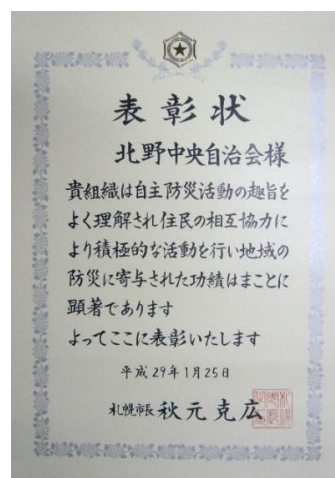 表彰状
北野中央自治会様
貴組織は自主防災活動の趣旨を
よく理解され住民の相互協力に
より積極的な活動を行い地域の
防災に寄与された功績はまことに
顕著であります
よってここに表彰いたします
平成29年1月25日
札幌市長 秋元克広